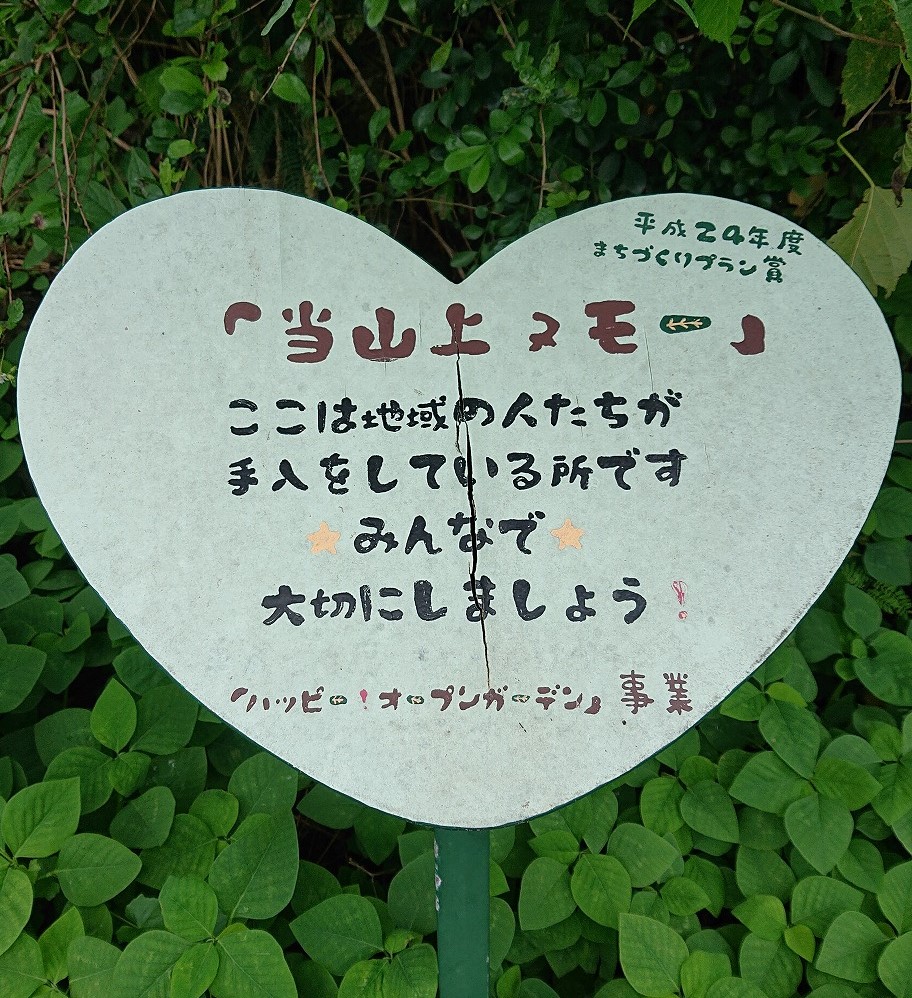 平成24年度
まちづくりプラン賞
「当山上ヌモー」
ここは地域の人たちが
手入をしている所です
みんなで
大切にしましょう!
「ハッピー!オープンガーデン」事業